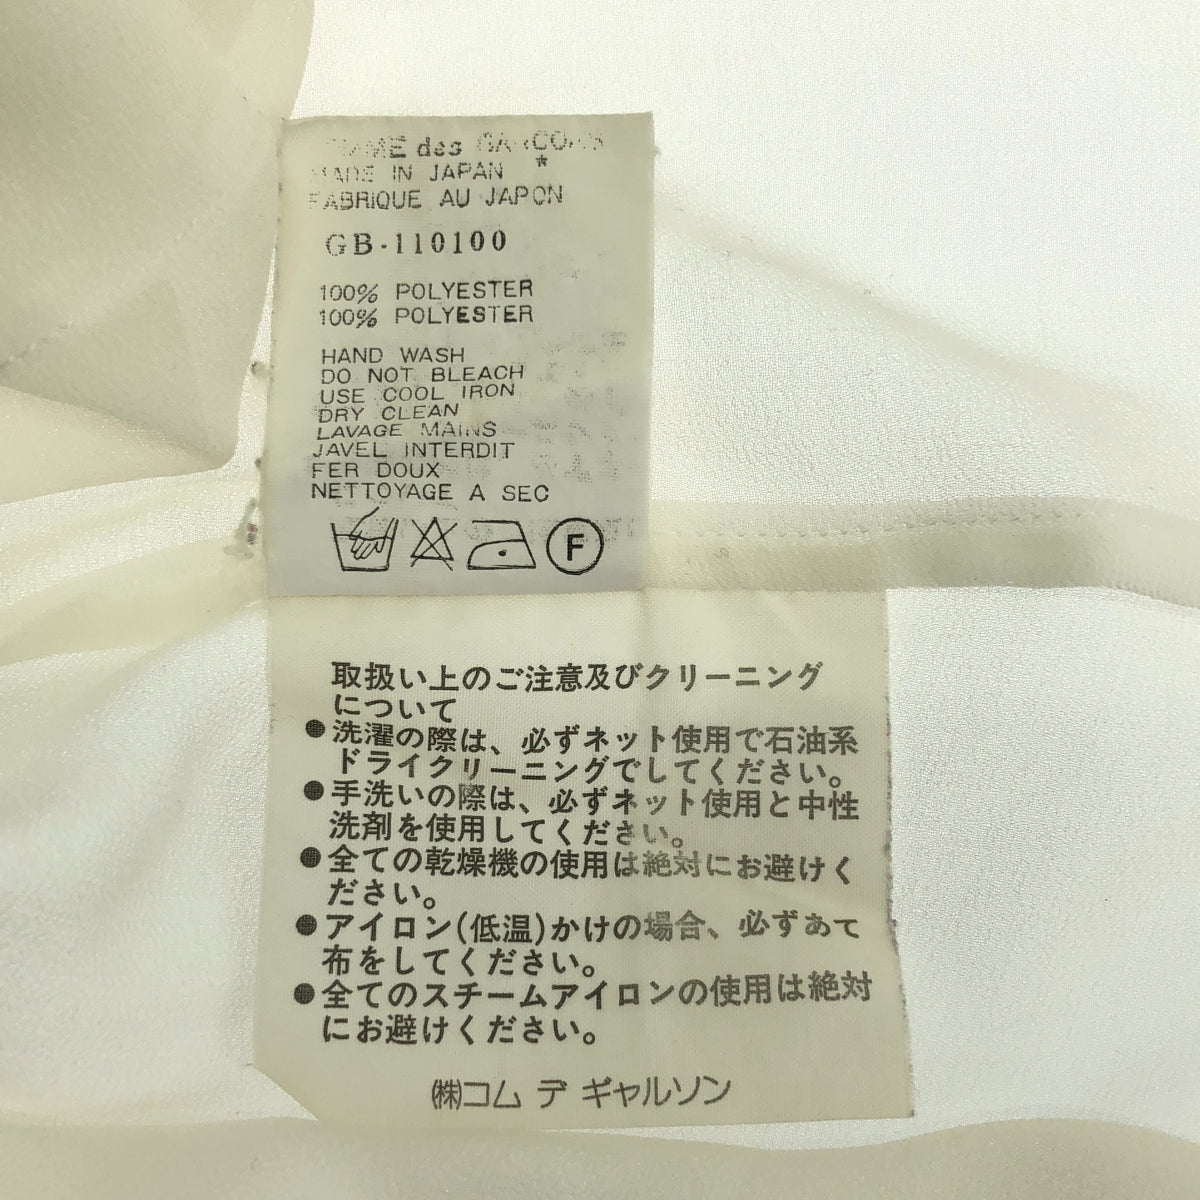 COMME des GARCONS
*
MADE IN JAPAN
FABRIQUE AU JAPON
GB-110100
100% POLYESTER
100% POLYESTER
HAND WASH
DO NOT BLEACH
USE COOL IRON
DRY CLEAN
LAVAGE MAINS
JAVEL INTERDIT
FER DOUX
NETTOYAGE A SEC
F
取扱い上のご注意及びクリーニング
について
●洗濯の際は、必ずネット使用で石油系
ドライクリーニングでしてください。
●手洗いの際は、必ずネット使用と中性
洗剤を使用してください。
●全ての乾燥機の使用は絶対にお避けく
ださい。
●アイロン(低温)かけの場合、必ずあて
布をしてください。
●全てのスチームアイロンの使用は絶対
にお避けください。
㈱コム デ ギャルソン